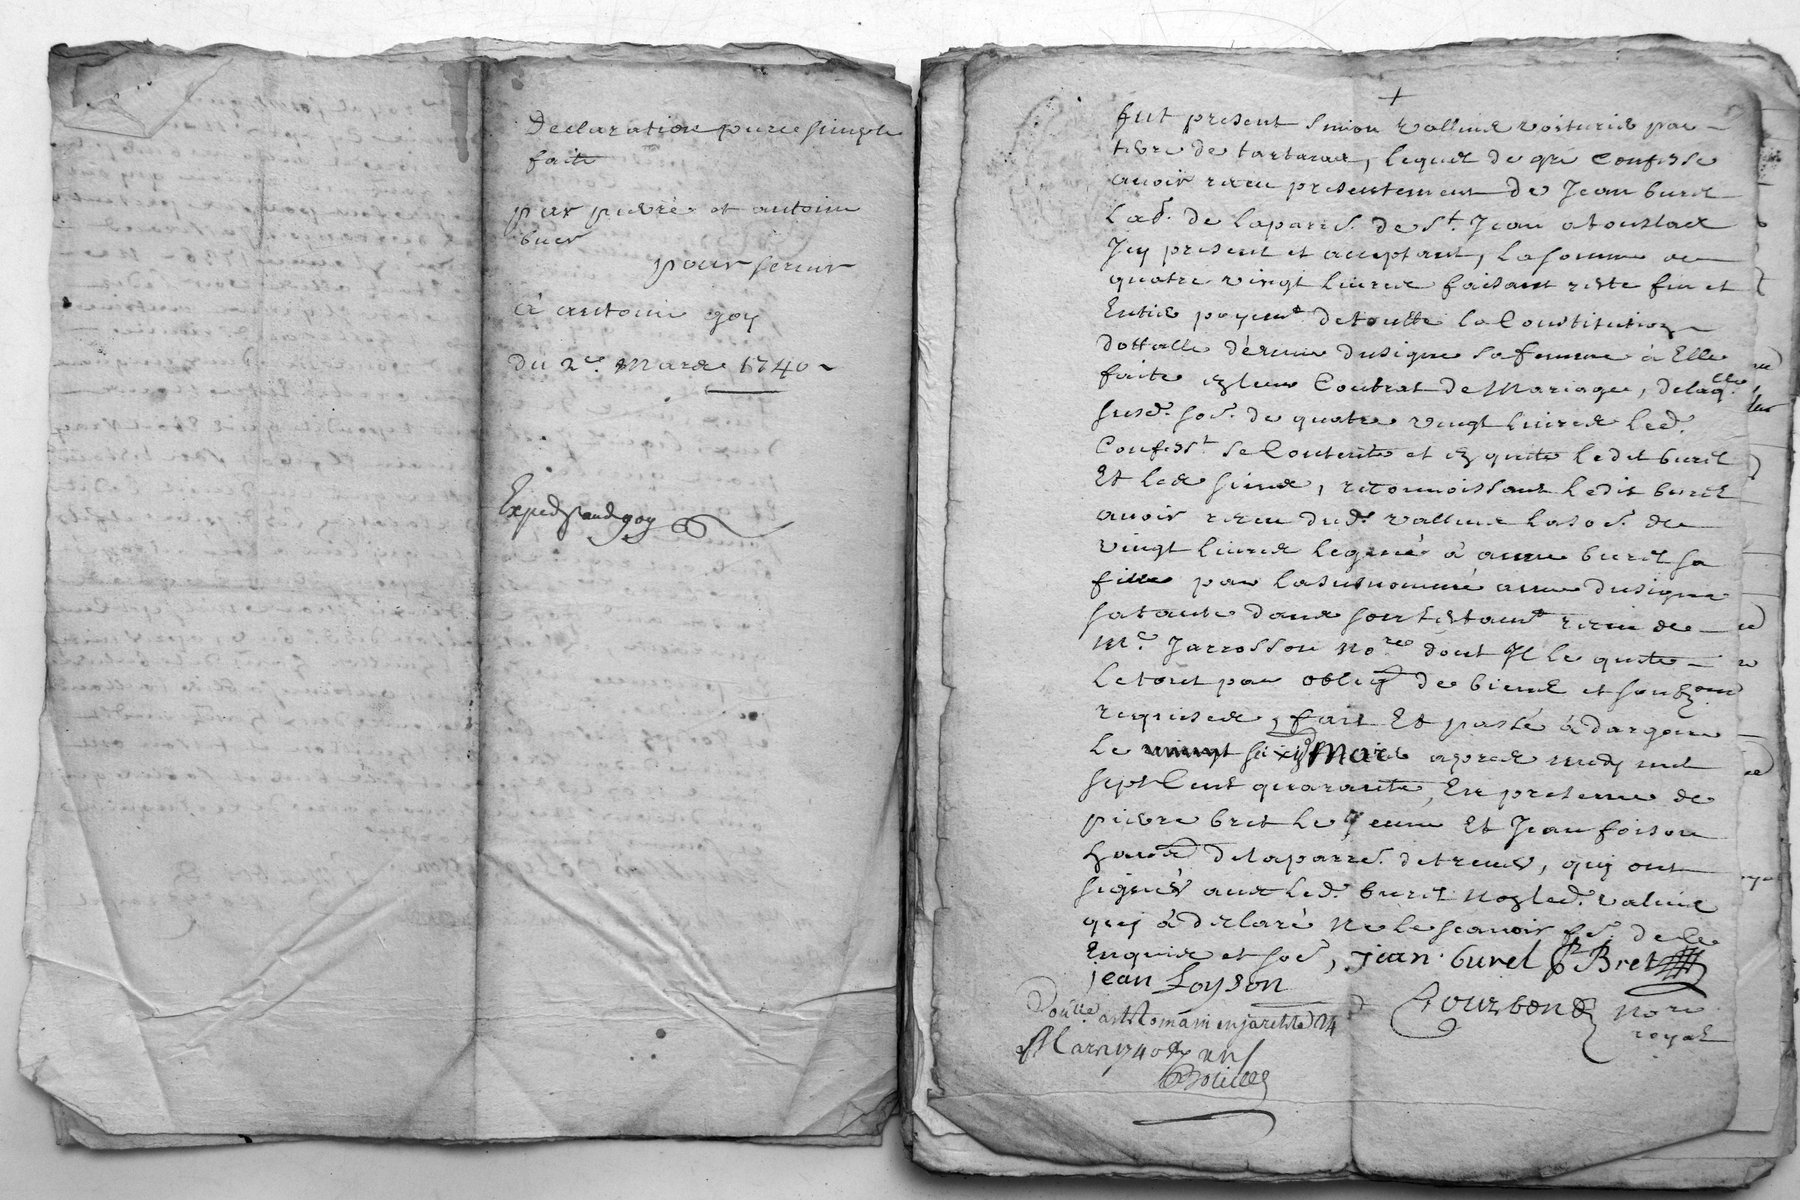 Declaration pure simple
faite
par pierre et antoine
buer
pour servir
à antoine goy
du 2e. Mars 1740
Exped pand goy
+
fut present Simon vallend voiturier par
terre de tartaras, lequel de gré confesse
avoir receu presentement de Jean burel
lad. de laparre. de St. Jean atouslas
Icy present et acceptant, la somme de
quatre vingt livres faisant reste fin et
Entier payemt. detoutte la Constitution
dottalle d'anne dusigne sa femme à Elle
faite en leur Contrat de Mariage, delaqlle.
susd. soe. de quatre vingt livres led.
Confest. se Contente et en quitte ledit burel
Et les siens, reconnoissant ledit burel
avoir receu dud. vallend lasoe. de
vingt livres legué à anne burel sa
fille par lasusnommé anne dusigne
sa tante dans son testamt. receu de
Me. Jarrosson nore. dont Il le quitte
Le tout par oblig de biens et
requises, fait Et passé à dargoire
le seize Mars apres midy mil
sept Cent quarante, En presence de
pierre bret le Jeune Et Jean foison
delaparre. detreves, quy ont
signés avec led. burel non led. valend
quy à declaré ne le scavoir fe. de ce
Enquis et soe, jean burel Pr Bret
jean foyson
Bourbon nore.
royal
Conlle. a st Romain en jarest le 24
Mars 1740